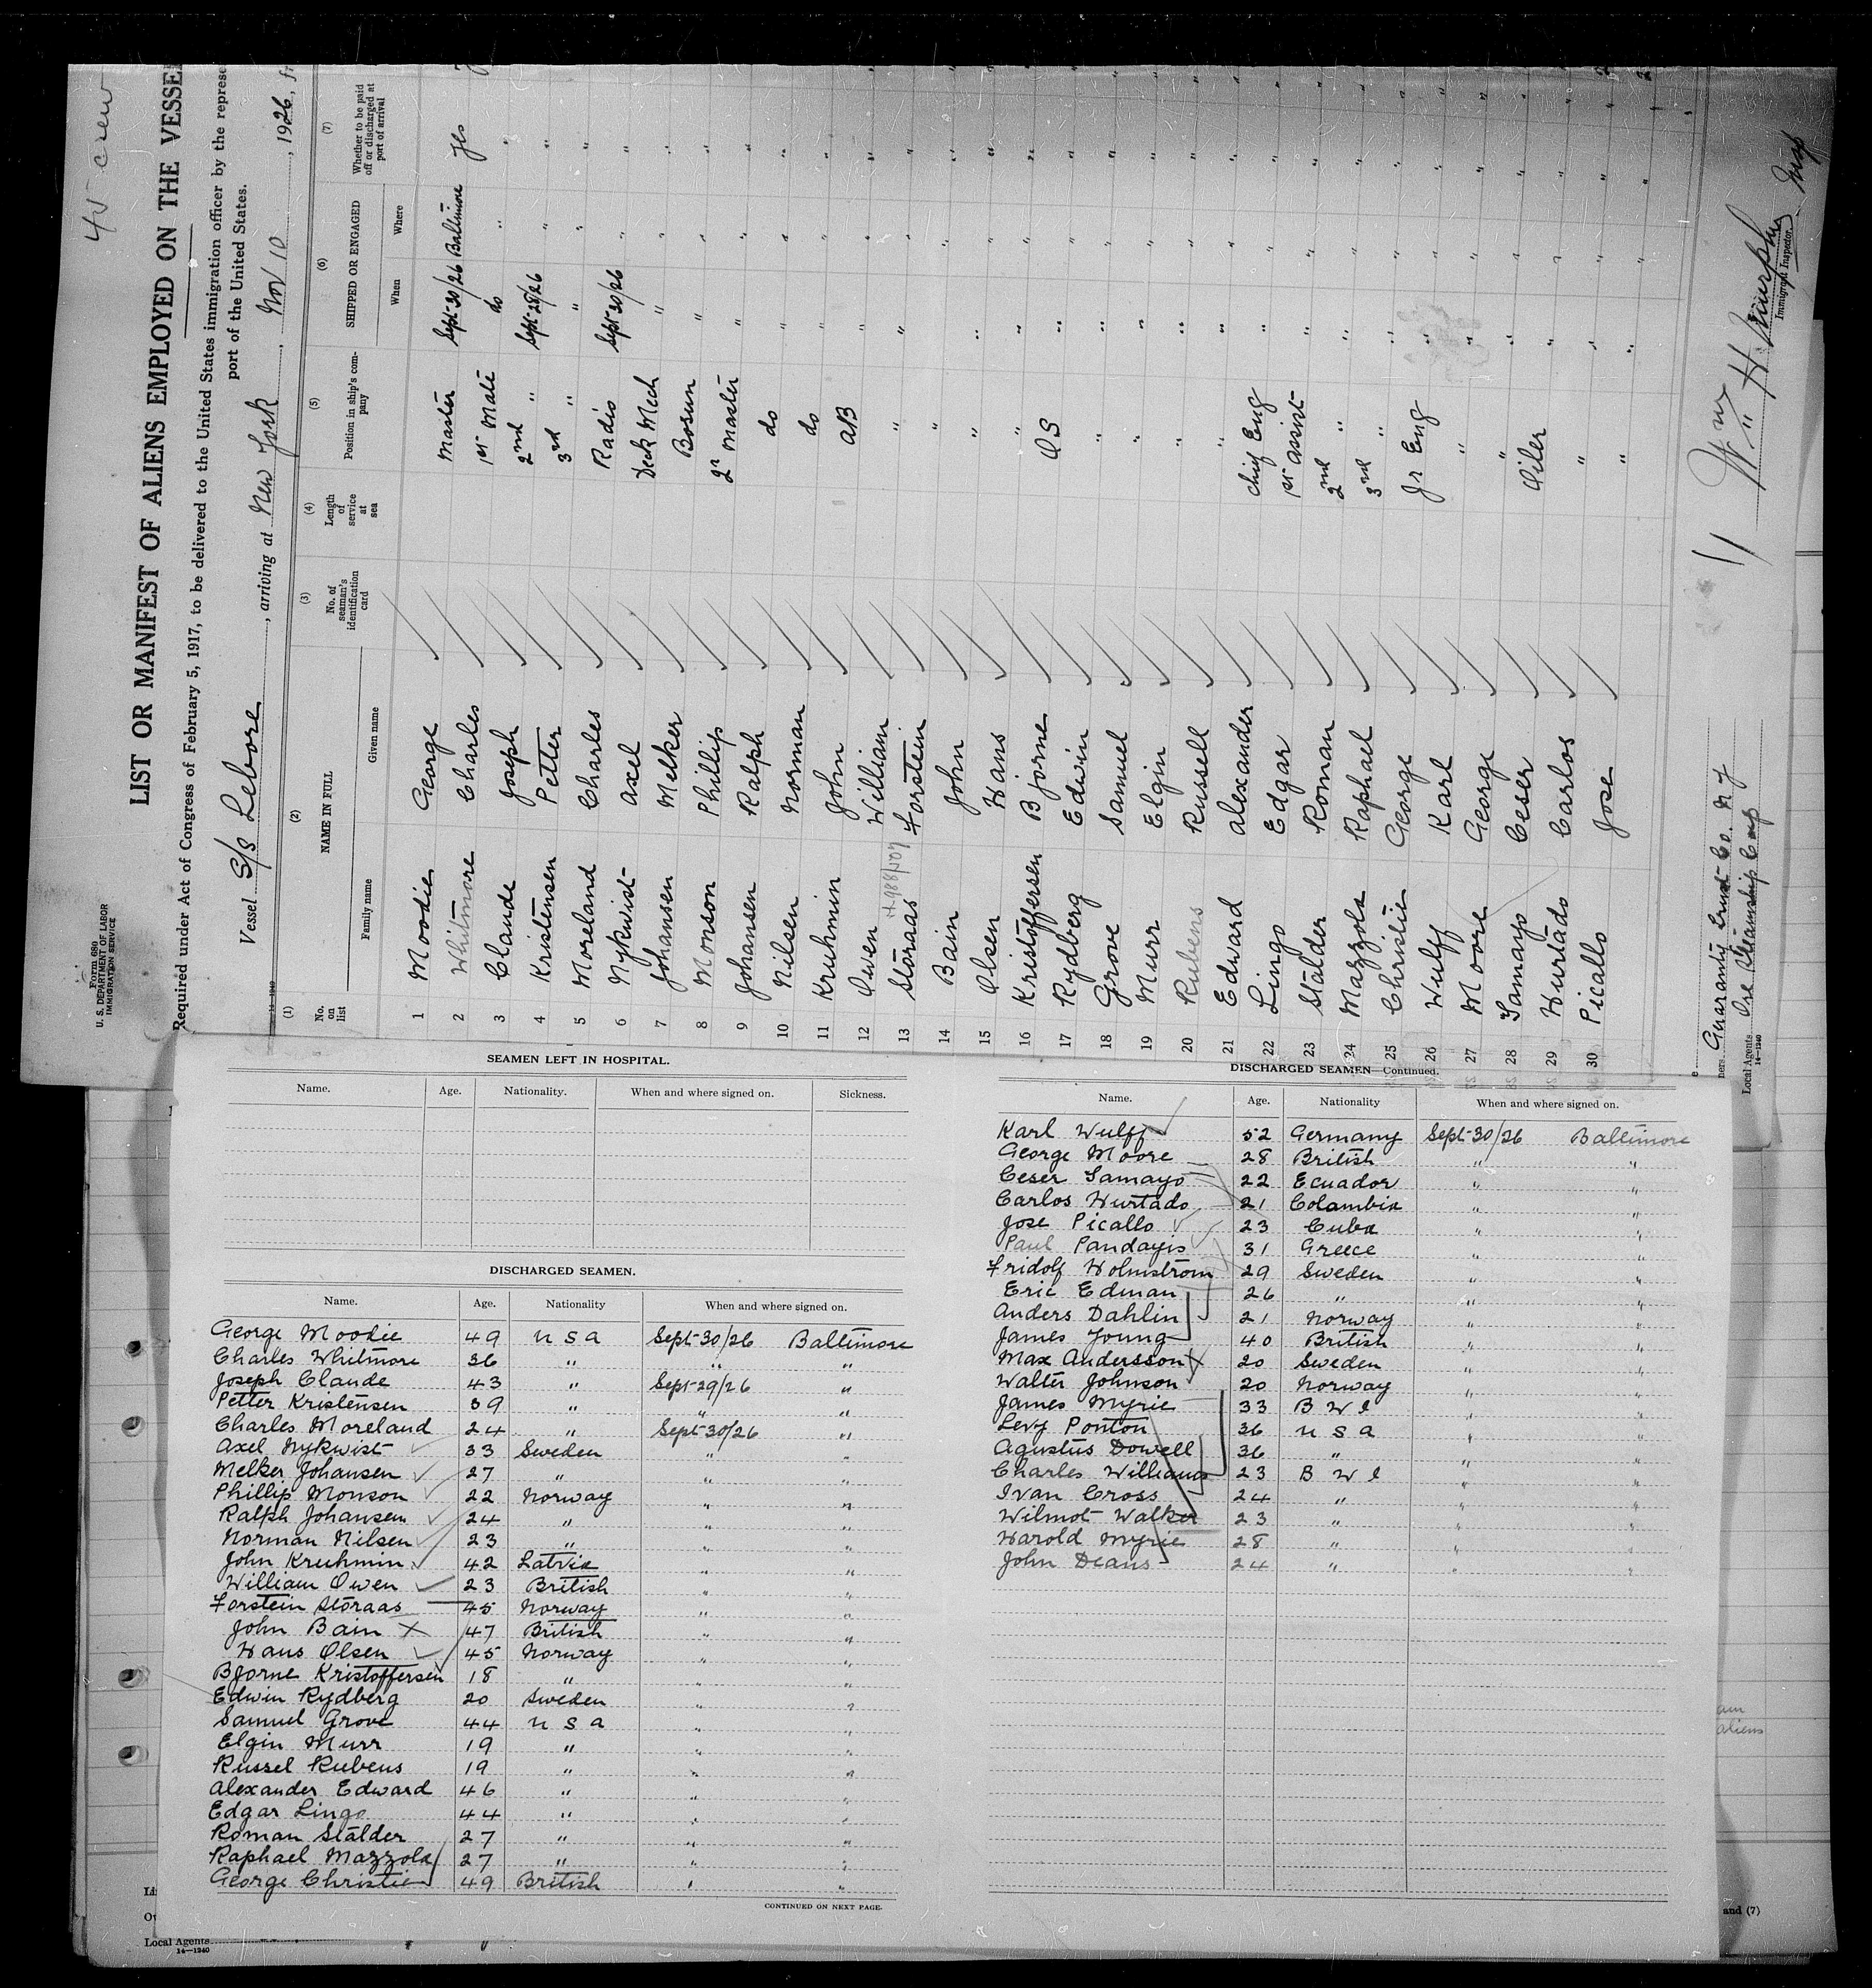 45 crew
Form 680
U. S. DEPARTMENT OF LABOR
IMMIGRATION SERVICE
LIST OR MANIFEST OF ALIENS EMPLOYED ON THE VESSE
Required under Act of Congress of February 5, 1917, to be delivered to the United States immigration officer by the represe
port of the United States.
Vessel S/S Lebore, arriving at New York, Nov 10, 1926, f
14—1240
(1) (2) (3) (4) (5) (6) (7)
No. on list NAME IN FULL No. of seaman's identification card Length of service at sea Position in ship's company SHIPPED OR ENGAGED Whether to be paid off or discharged at port of arrival
Family name Given name When Where
1 Moodie George Master Sept-30/26 Baltimore yes
2 Whitmore Charles 1st Mate do " "
3 Claude Joseph 2nd " Sept-28/26 " "
4 Kristensen Petter 3rd " " " "
5 Moreland Charles Radio Sept-30/26 " "
6 Nykwist Axel Deck Mech " " "
7 Johansen Melker Bosun " " "
8 Monson Phillip 2r Master " " "
9 Johansen Ralph do " " "
10 Nilsen Norman do " " "
11 Kruhmin John AB " " "
12 Owen William " " " "
13 Storaas Torstein " " " "
14 Bain John " " " "
15 Olsen Hans " " " "
16 Kristoffersen Bjorne OS " " "
17 Rydberg Edwin " " " "
18 Grove Samuel " " " "
19 Murr Elgin " " " "
20 Rubens Russell " " " "
21 Edward Alexander Chief Eng " " "
22 Lingo Edgar 1st Assist " " "
23 Stalder Roman 2nd " " " "
24 Mazzola Raphael 3rd " " " "
25 Christie George Jr Eng " " "
26 Wulff Karl " " " "
27 Moore George " " " "
28 Tamayo Ceser Oiler " " "
29 Hurtado Carlos " " " "
30 Picallo Jose " " " "
ners Guaranty Trust Co. N Y
Local Agents Ore Steamship Corp
14—1240
Wm H. Murphy
Immigrant Inspector.
SEAMEN LEFT IN HOSPITAL.
Name. Age. Nationality. When and where signed on. Sickness.
DISCHARGED SEAMEN.
Name. Age. Nationality When and where signed on.
George Moodie 49 U S A Sept-30/26 Baltimore
Charles Whitmore 36 " " "
Joseph Claude 43 " Sept-29/26 "
Petter Kristensen 39 " " "
Charles Moreland 24 " Sept-30/26 "
Axel Nykwist 33 Sweden " "
Melker Johansen 27 " " "
Phillip Monson 22 Norway " "
Ralph Johansen 24 " " "
Norman Nilsen 23 " " "
John Kruhmin 42 Latvia " "
William Owen 23 British " "
Torstein Storaas 45 Norway " "
John Bain 47 British " "
Hans Olsen 45 Norway " "
Bjorne Kristoffersen 18 " " "
Edwin Rydberg 20 Sweden " "
Samuel Grove 44 U S A " "
Elgin Murr 19 " " "
Russel Rubens 19 " " "
Alexander Edward 46 " " "
Edgar Lingo 44 " " "
Roman Stalder 27 " " "
Raphael Mazzola 27 " " "
George Christie 49 British " "
CONTINUED ON NEXT PAGE.
DISCHARGED SEAMEN—Continued.
Name. Age. Nationality When and where signed on.
Karl Wulff 52 Germany Sept-30/26 Baltimore
George Moore 28 British " "
Ceser Tamayo 22 Ecuador " "
Carlos Hurtado 21 Colambia " "
Jose Picallo 23 Cuba " "
Paul Pandayis 31 Greece " "
Fridolf Holmstrom 29 Sweden " "
Eric Edman 26 " " "
Anders Dahlin 21 Norway " "
James Young 40 British " "
Max Andersson 20 Sweden " "
Walter Johnson 20 Norway " "
James Myrie 33 B W I " "
Levy Ponton 36 U S A " "
Agustus Dowell 36 " " "
Charles Williams 23 B W I " "
Ivan Cross 24 " " "
Wilmot Walker 23 " " "
Harold Myrie 28 " " "
John Deans 24 " " "
am
aliens
and (7)
Local Agents
14—1240